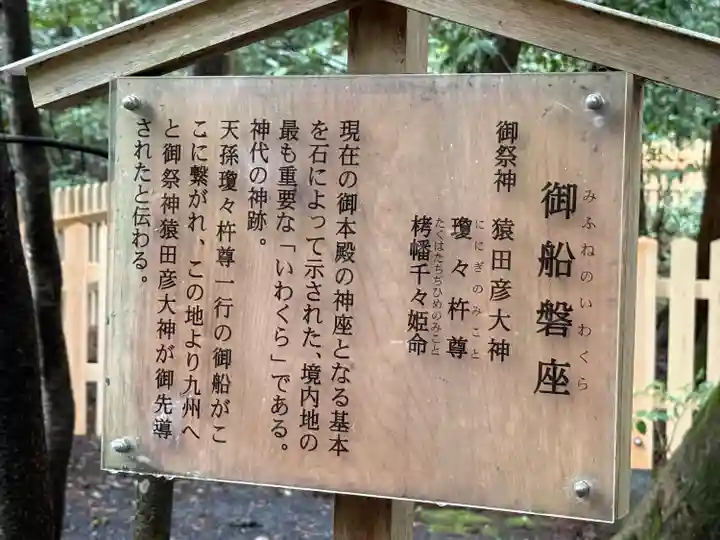 みふねのいわくら
御船磐座
御祭神 猿田彦大神
ににぎのみこと
瓊々杵尊
たくはたちぢひめのみこと
栲幡千々姫命
現在の御本殿の神座となる基本
を石によって示された、境内地の
最も重要な「いわくら」である。
神代の神跡。
天孫瓊々杵尊一行の御船がこ
こに繋がれ、この地より九州へ
と御祭神猿田彦大神が御先導
されたと伝わる。